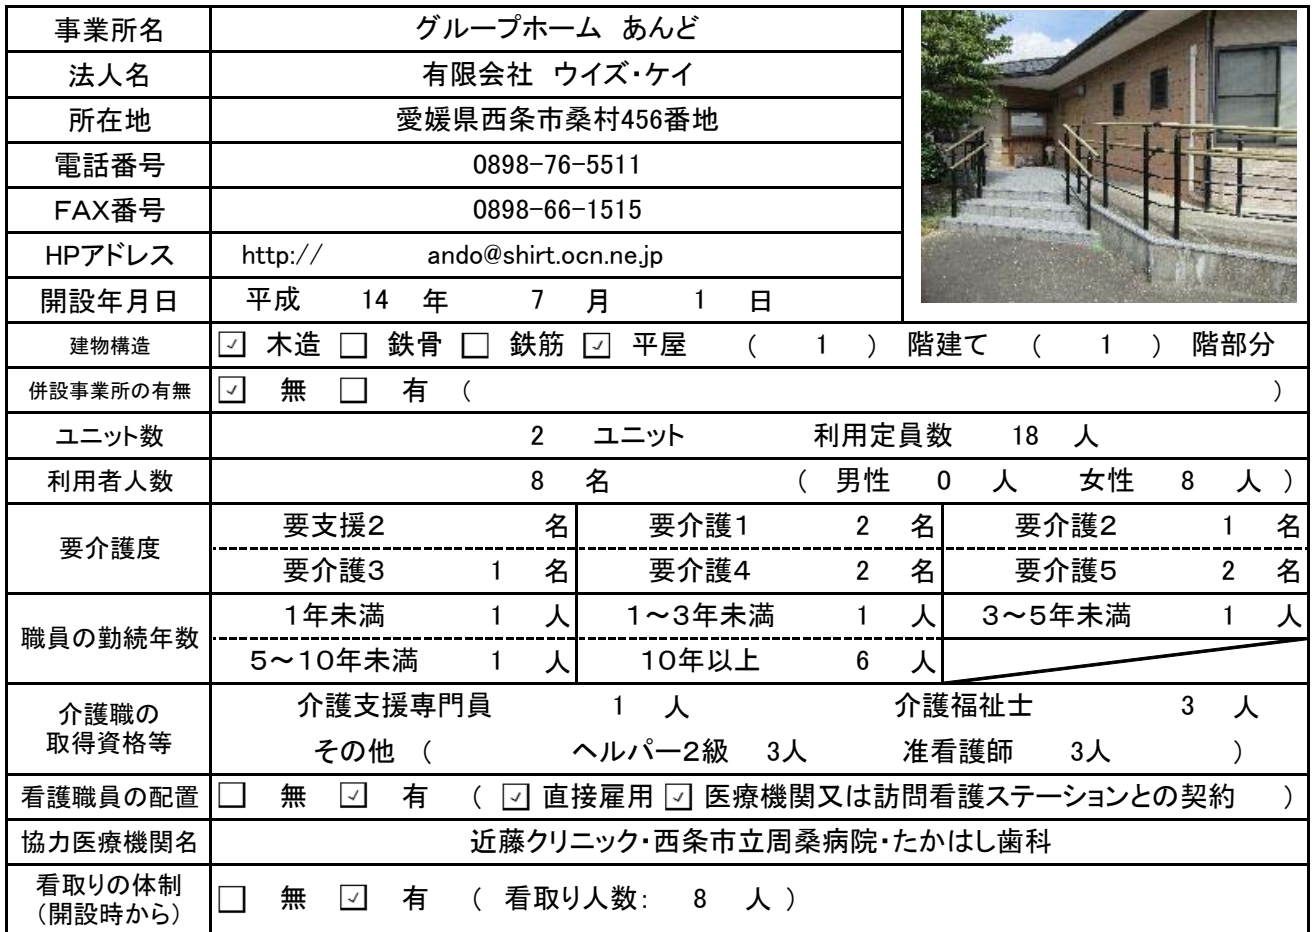 事業所名 グループホーム　あんど
法人名 有限会社　ウイズ・ケイ
所在地 愛媛県西条市桑村456番地
電話番号 0898-76-5511
FAX番号 0898-66-1515
HPアドレス http:// ando@shirt.ocn.ne.jp
開設年月日 平成 14 年 7 月 1 日
建物構造 ☑ 木造 ☐ 鉄骨 ☐ 鉄筋 ☑ 平屋 ( 1 ) 階建て ( 1 ) 階部分
併設事業所の有無 ☑ 無 ☐ 有 ( )
ユニット数 2 ユニット 利用定員数 18 人
利用者人数 8 名 ( 男性 0 人 女性 8 人 )
要介護度 要支援2 名 要介護1 2 名 要介護2 1 名
要介護3 1 名 要介護4 2 名 要介護5 2 名
職員の勤続年数 1年未満 1 人 1～3年未満 1 人 3～5年未満 1 人
5～10年未満 1 人 10年以上 6 人
介護職の
取得資格等
介護支援専門員 1 人 介護福祉士 3 人
その他 ( ヘルパー2級 3人 准看護師 3人 )
看護職員の配置 ☐ 無 ☑ 有 ( ☑ 直接雇用 ☑ 医療機関又は訪問看護ステーションとの契約 )
協力医療機関名 近藤クリニック・西条市立周桑病院・たかはし歯科
看取りの体制
（開設時から）
☐ 無 ☑ 有 ( 看取り人数: 8 人 )